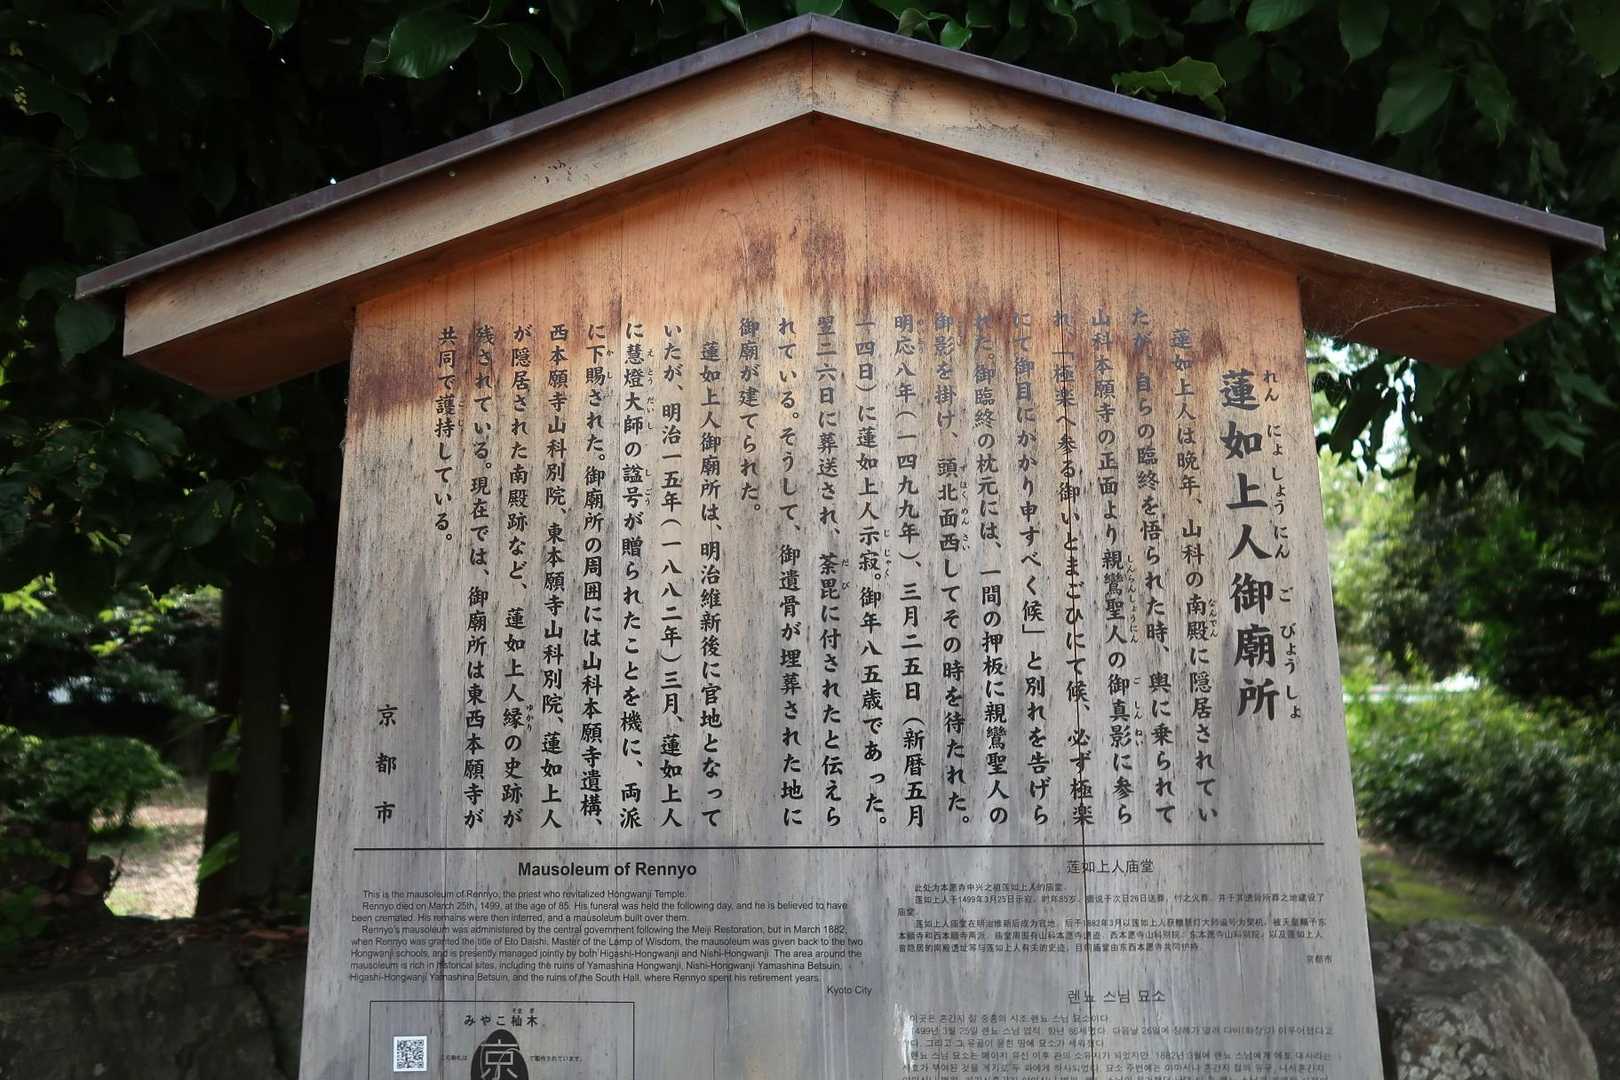 蓮如上人御廟所
れん にょしょうにん ご びょうしょ
蓮如上人は晩年、山科の南殿に隠居されてい
なんでん
たが、自らの臨終を悟られた時、輿に乗られて
山科本願寺の正面より親鸞聖人の御真影に参ら
しんらんしょうにん ご しんねい
れ、「極楽へ参る御いとまごひにて候、必ず極楽
にて御目にかかり申すべく候」と別れを告げら
れた。御臨終の枕元には、一間の押板に親鸞聖人の
御影を掛け、頭北面西してその時を待たれた。
ずほくめんさい
明応八年（一四九九年）、三月二五日（新暦五月
一四日）に蓮如上人示寂。御年八五歳であった。
じじゃく
翌二六日に葬送され、荼毘に付されたと伝えら
だび
れている。そうして、御遺骨が埋葬された地に
御廟が建てられた。
蓮如上人御廟所は、明治維新後に官地となって
いたが、明治一五年（一八八二年）三月、蓮如上人
に慧燈大師の諡号が贈られたことを機に、両派
えとうだいし しごう
に下賜された。御廟所の周囲には山科本願寺遺構、
かし
西本願寺山科別院、東本願寺山科別院、蓮如上人
が隠居された南殿跡など、蓮如上人縁の史跡が
ゆかり
残されている。現在では、御廟所は東西本願寺が
共同で護持している。
ごじ
京都市
Mausoleum of Rennyo
This is the mausoleum of Rennyo, the priest who revitalized Hongwanji Temple.
Rennyo died on March 25th, 1499, at the age of 85. His funeral was held the following day, and he is believed to have
been cremated. His remains were then interred, and a mausoleum built over them.
Rennyo's mausoleum was administered by the central government following the Meiji Restoration, but in March 1882,
when Rennyo was granted the title of Eto Daishi, Master of the Lamp of Wisdom, the mausoleum was given back to the two
Hongwanji schools, and is presently managed jointly by both Higashi-Hongwanji and Nishi-Hongwanji. The area around the
mausoleum is rich in historical sites, including the ruins of Yamashina Hongwanji, Nishi-Hongwanji Yamashina Betsuin,
Higashi-Hongwanji Yamashina Betsuin, and the ruins of the South Hall, where Rennyo spent his retirement years.
Kyoto City
莲如上人庙堂
此处为本愿寺中兴之祖莲如上人的庙堂。
莲如上人于1499年3月25日示寂，时年85岁。据说于次日26日送葬，付之火葬，并于其遗骨所葬之地建设了
庙堂。
莲如上人庙堂在明治维新后成为官地，后于1882年3月以莲如上人获赠慧灯大师谥号为契机，被天皇赐予东
本愿寺和西本愿寺两派。庙堂周围有山科本愿寺遗迹、西本愿寺山科别院、东本愿寺山科别院，以及莲如上人
曾隐居的南殿遗址等与莲如上人有关的史迹。目前庙堂由东西本愿寺共同护持。
京都市
렌뇨 스님 묘소
이곳은 혼간지 절 중흥의 시조 렌뇨 스님 묘소이다.
みやこ杣木
そま ぎ
この駒札は
京
で製作されています。